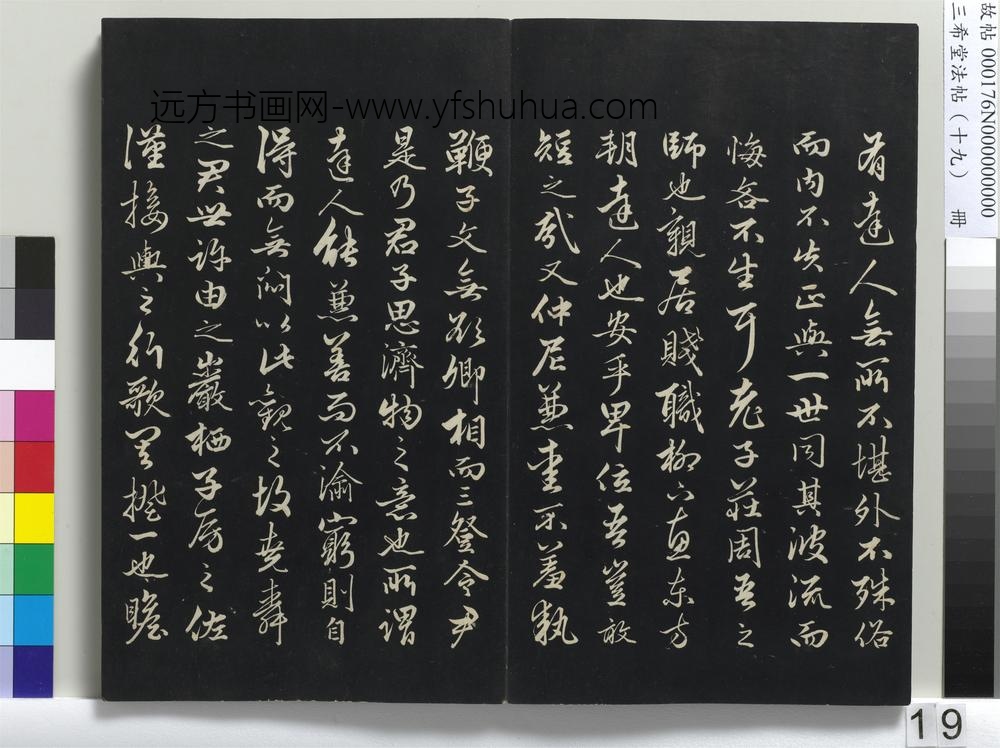 有達人無所不堪外不殊俗
而内不失正與一世同其波流而
悔吝不生耳老子莊周吾之
師也親居賤職柳下惠東方
朔達人也安乎卑位吾豈敢
短之哉又仲尼兼愛不羞執
鞭子文無欲卿相而三登令尹
是乃君子思濟物之意也所謂
達人能兼善而不渝窮則自
得而無悶以此觀之故堯舜
之君世許由之巖栖子房之佐
漢接輿之行歌其揆一也瞻
远方书画网-www.yfshuhua.com
故帖 000176N000000000
三希堂法帖（十九） 册
19